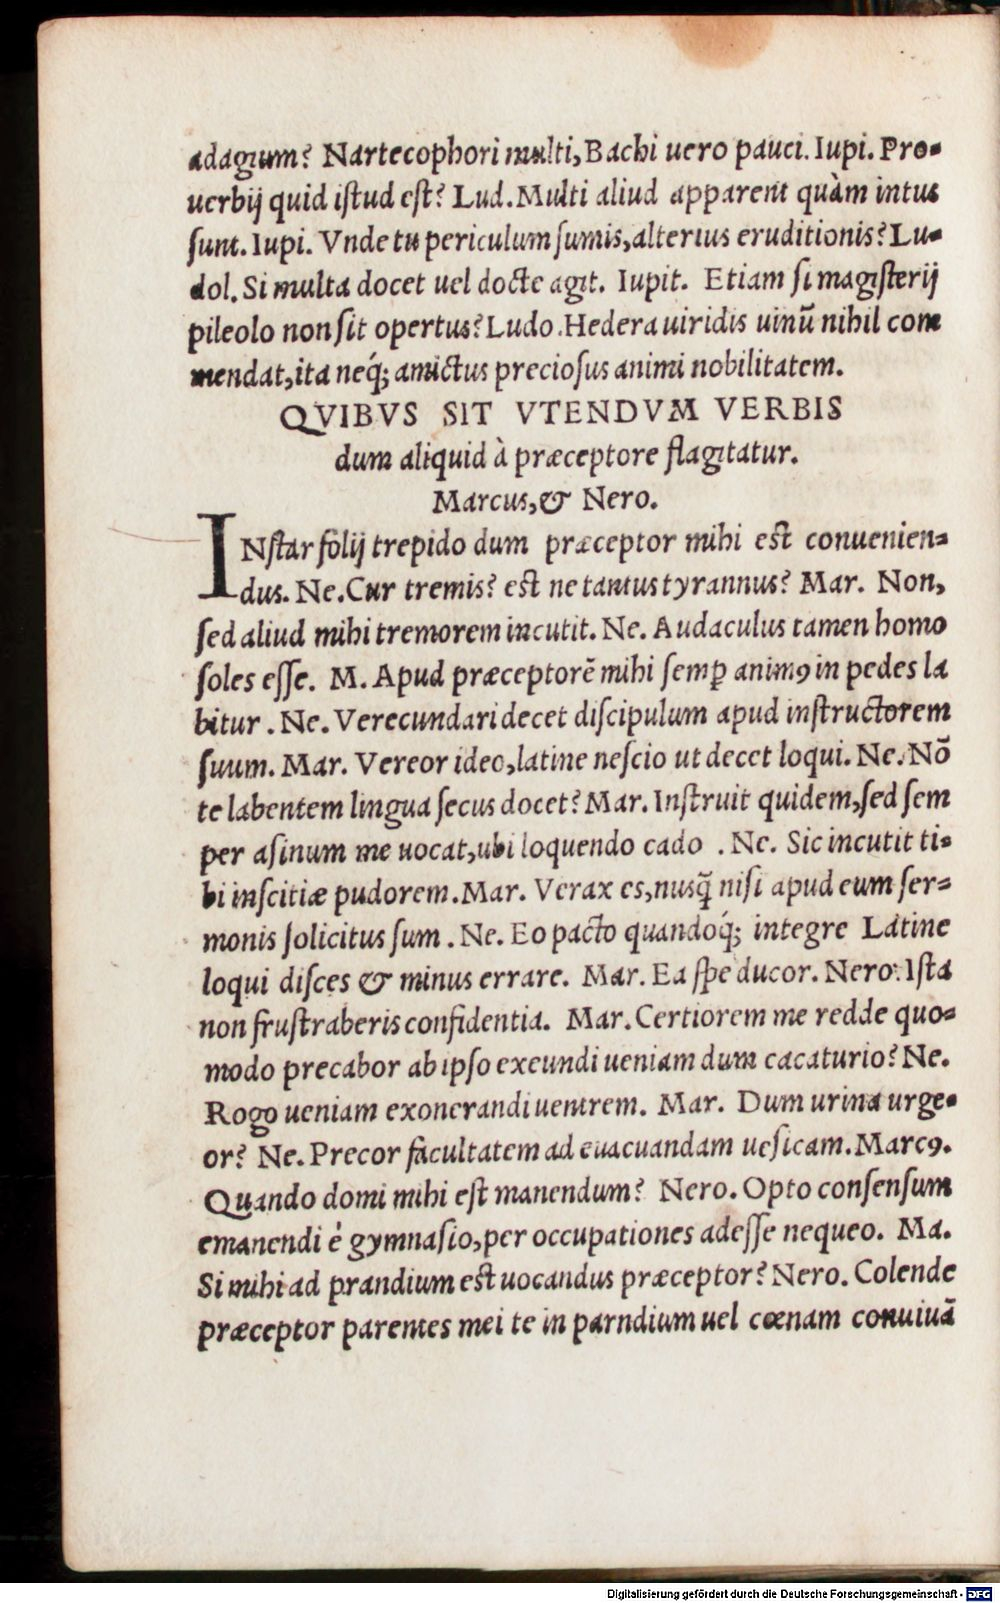 adagium? Nartecophori multi, Bachi uero pauci. Iupi. Pro-
uerbij quid iſtud eſt? Lud. Multi aliud apparent quàm intus
ſunt. Iupi. Vnde tu periculum ſumis, alterius eruditionis? Lu-
dol. Si multa docet uel docte agit. Iupit. Etiam ſi magiſterij
pileolo non ſit opertus? Ludo. Hedera uiridis uinū nihil com
mendat, ita neq́; amictus precioſus animi nobilitatem.
QVIBVS SIT VTENDVM VERBIS
dum aliquid à præceptore flagitatur.
Marcus, & Nero.
INſtar folij trepido dum præceptor mihi eſt conuenien-
dus. Ne. Cur tremis? eſt ne tantus tyrannus? Mar. Non,
ſed aliud mihi tremorem incutit. Ne. Audaculus tamen homo
ſoles eſſe. M. Apud præceptorē mihi ſemꝑ animꝰ in pedes la
bitur. Ne. Verecundari decet diſcipulum apud inſtructorem
ſuum. Mar. Vereor ideo, latine neſcio ut decet loqui. Ne. Nō
te labentem lingua ſecus docet? Mar. Inſtruit quidem, ſed ſem
per aſinum me uocat, ubi loquendo cado. Ne. Sic incutit ti-
bi inſcitiæ pudorem. Mar. Verax es, nusq̃ niſi apud eum ſer-
monis ſolicitus ſum. Ne. Eo pacto quandoq́; integre Latine
loqui diſces & minus errare. Mar. Ea ſpe ducor. Nero. Iſta
non fruſtraberis confidentia. Mar. Certiorem me redde quo-
modo precabor ab ipſo exeundi ueniam dum cacaturio? Ne.
Rogo ueniam exonerandi uentrem. Mar. Dum urina urge-
or? Ne. Precor facultatem ad euacuandam ueſicam. Marcꝰ.
Quando domi mihi eſt manendum? Nero. Opto conſenſum
emanendi è gymnaſio, per occupationes adeſſe nequeo. Ma.
Si mihi ad prandium eſt uocandus præceptor? Nero. Colende
præceptor parentes mei te in parndium uel cœnam conuiuā
Digitalisierung gefördert durch die Deutsche Forschungsgemeinschaft - DFG